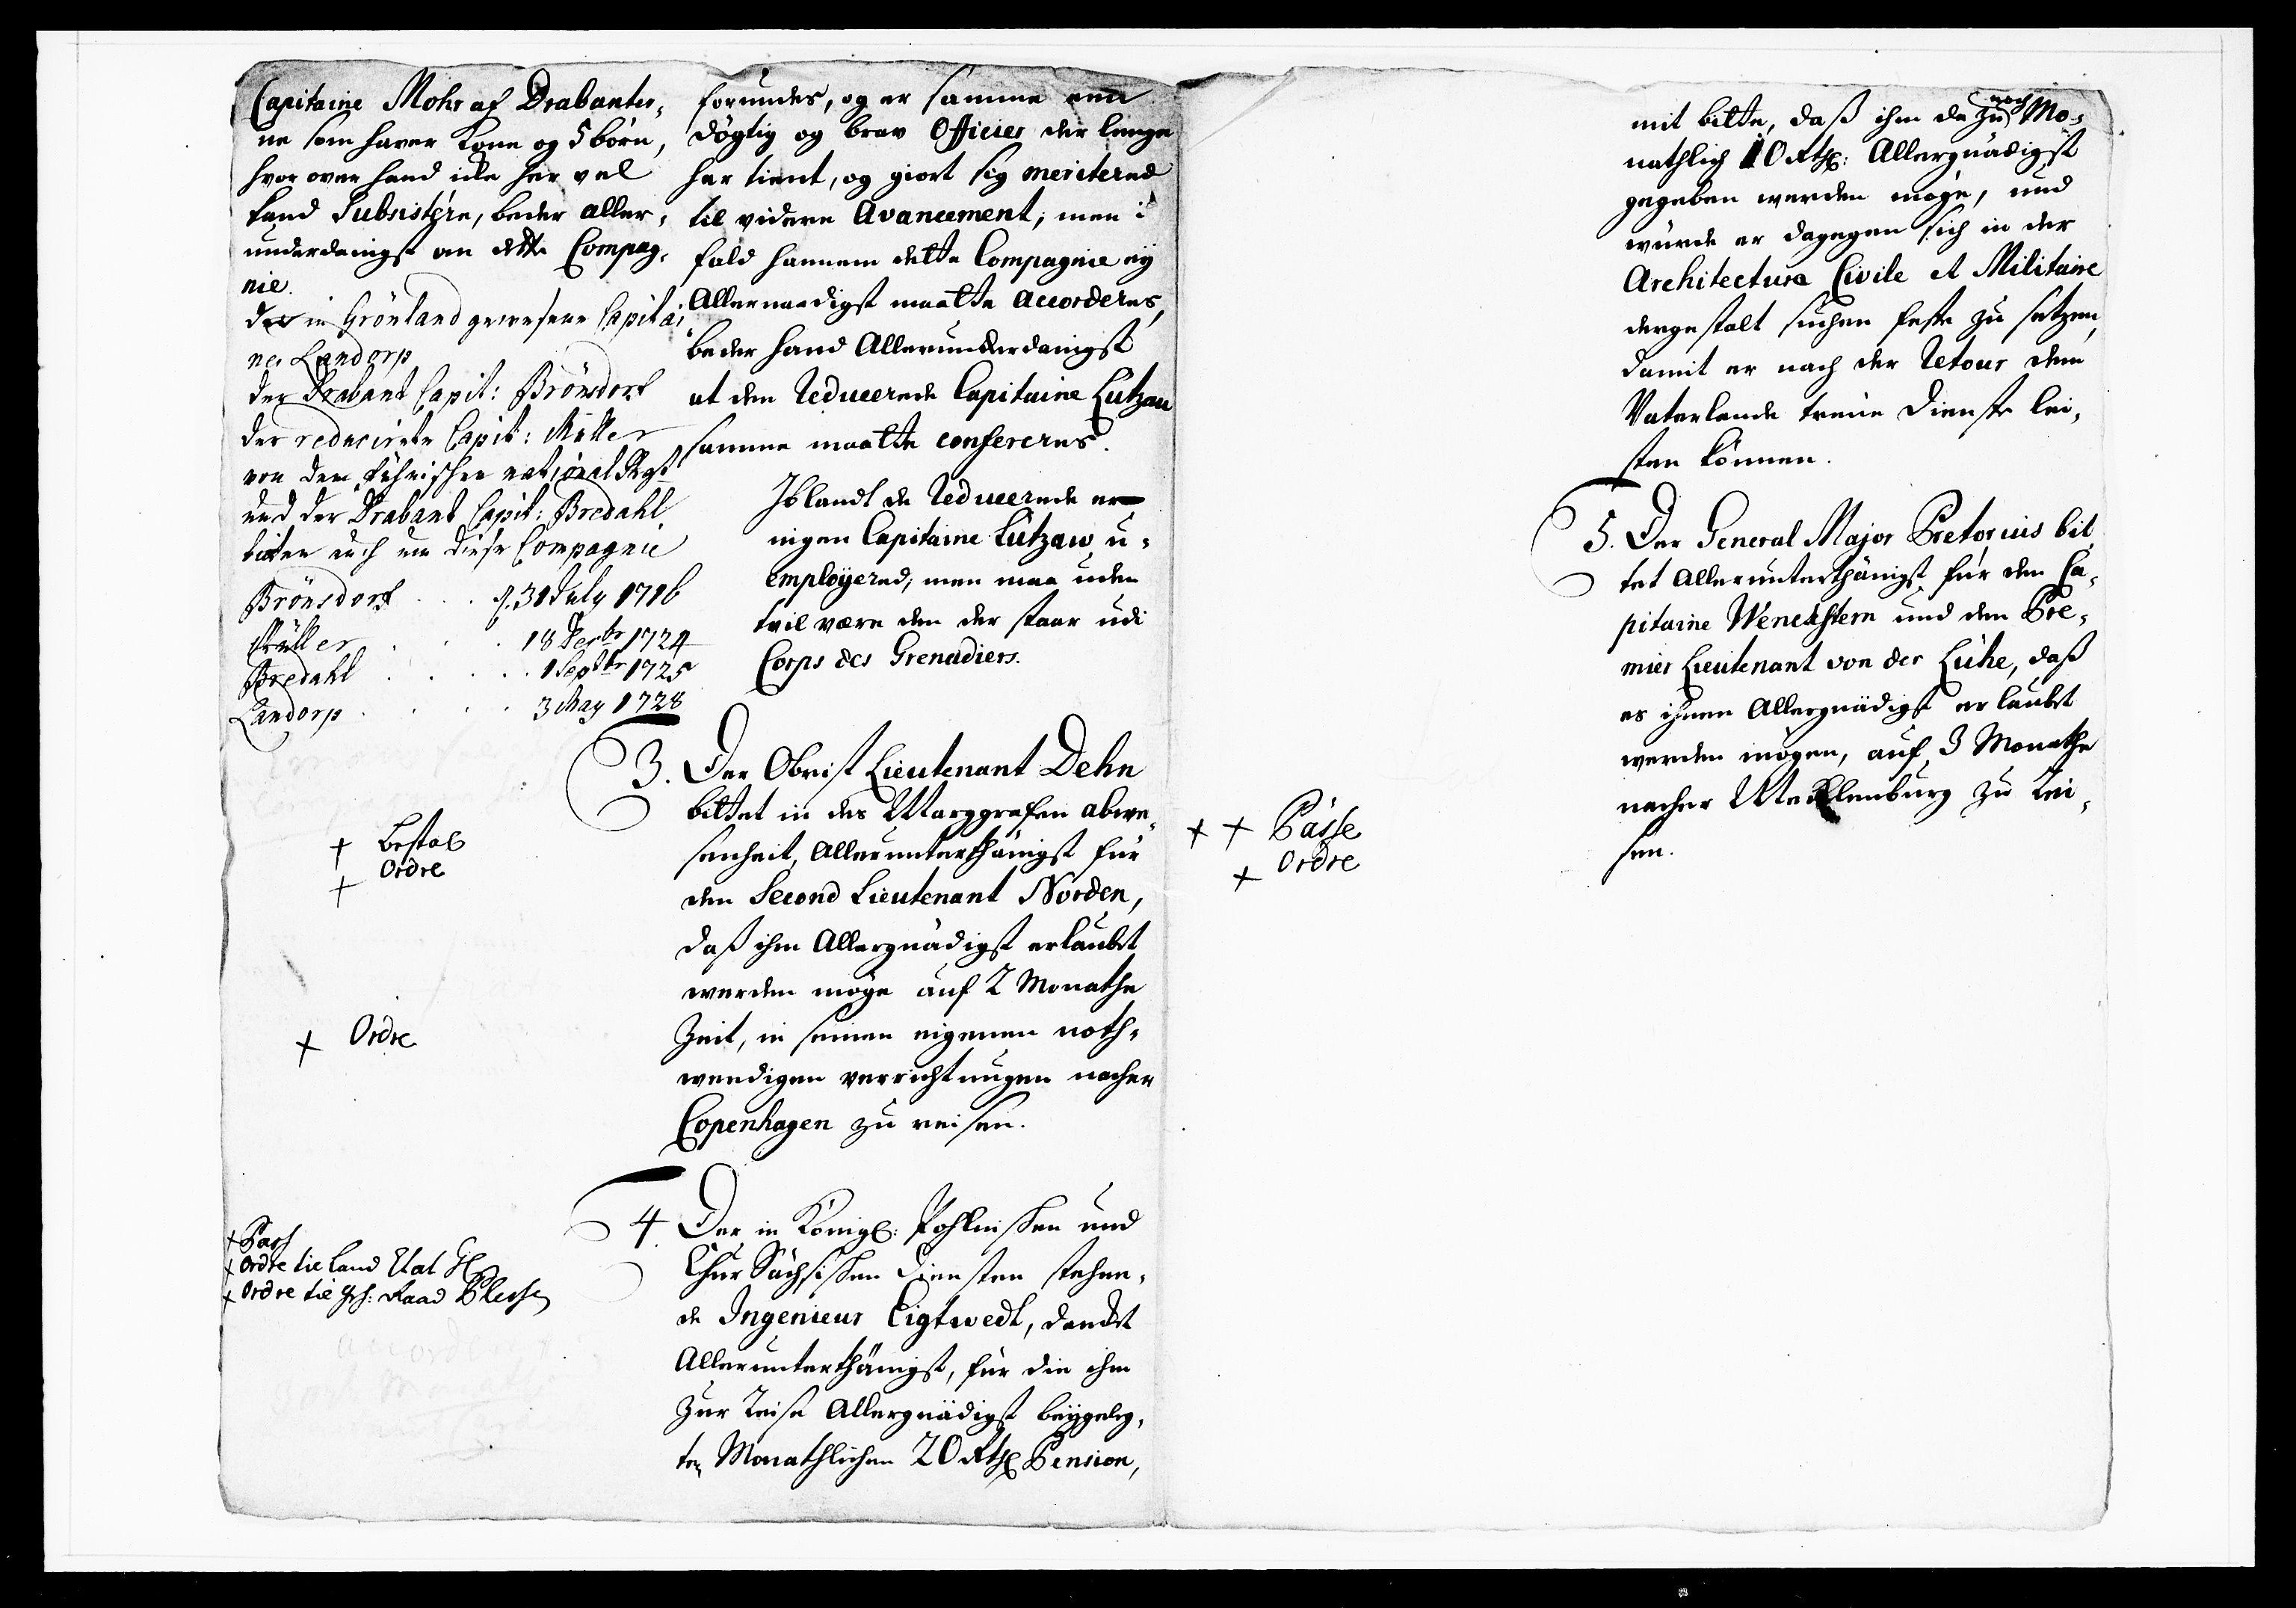 Capitaine Mohr af Drabanter-
ne som haver Kone og 5 børn,
hvor over hand icke her vel
kand Subsistére, beder aller-
underdanigst om dette Compag-
nie.
der in Grönland gewesene Capitai-
ne Landorp
der Drabant Capit: Brönsdorf
der reducirete Capit: Müller
von dem Fühnischen national Regt
und der Drabant Capit: Bredahl
bitten auch um diese Compagnie
Brönsdorf . . . 31 July 1716
Müller . . . 18 Decbr 1724
Bredahl . . . . 1 Septbr 1725
Landorp . . . . 3 May 1728
+ Bestal
+ Ordre
+ Ordre
+ Pass
+ Ordre til Land Etat
+ Ordre til Geh: Raad Plessen
forundes, og er samme een
dögtig og brav Officier der lenge
har tient, og giort sig meritered
til videre Avancement, men i
fald hannem dette Compagnie ey
Allernaadigst maatte accorderes,
beder hand Allerunderdanigst
at den Reducerede Capitaine Lützau
samme maatte confereres.
Iblandt de Reducerede er
ingen Capitaine Lützaw u-
employered, men maa uden
tvil være den der staar udi
Corps des Grenadiers.
3. Der Obrist Lieutenant Dehn
bittet in des Marggrafen abwe-
senheit, Allerunterthänigst für
den Second Lieutenant Norden,
daß ihm Allergnädigst erlaubt
werden möge auf 2 Monathe
Zeit, in seinen eigenen noth-
wendigen verrichtungen nacher
Copenhagen zu reisen.
4. Der in Königl: Pohlnischen und
Chur Sächsischen Diensten stehen-
de Ingenieur Eigtwedt, dancket
Allerunterthänigst, für die ihm
zur Reise Allergnädigst beygeleg-
ten Monathlichen 20 Rthl Pension,
+ + Pässe
+ Ordre
mit bitte, daß ihm dazu noch Mo-
nathlich 10 Rthl: Allergnädigst
gegeben werden möge, und
würde er dagegen sich in der
Architectura Civile et Militaire
dergestalt suchen feste zu setzen,
damit er nach der Retour dem
Vaterlande treue Dienste lei-
sten können.
5. Der General Major Pretorius bit-
tet Allerunterthänigst für den Ca-
pitaine Wenckstern und den Pre-
mier Lieutenant von der Lühe, daß
es ihnen Allergnädigst erlaubt
werden mögen, auf 3 Monathe
nacher Mecklenburg zu Rei-
sen.